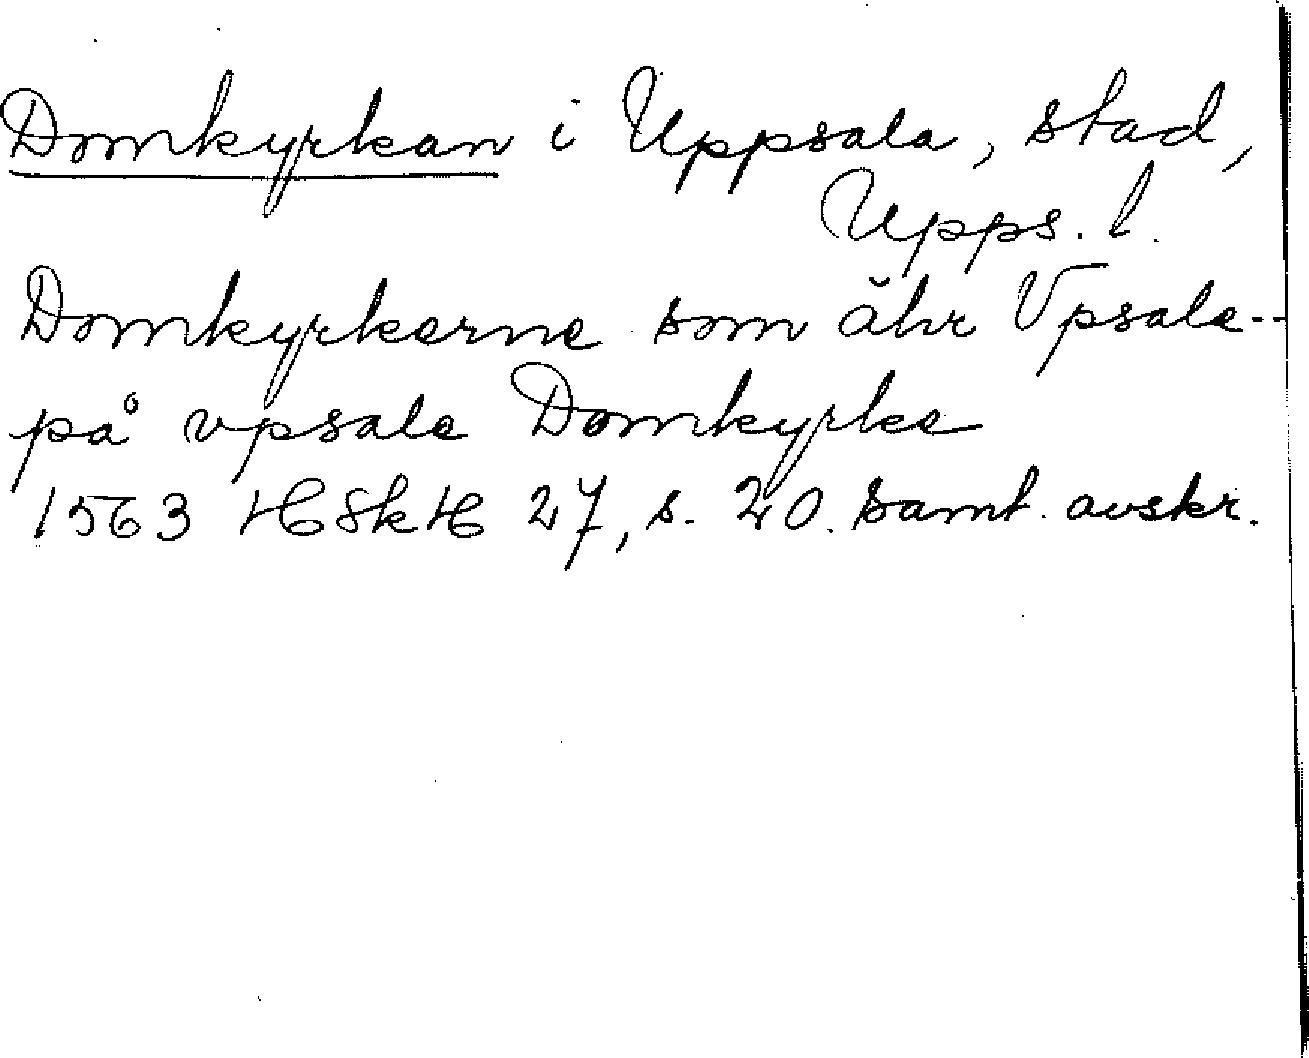 Domkyrkan i Uppsala, stad,
Upps. l.
Domkyrkerne som ähr Vpsale--
på vpsale Domkyrke
1563 HSkH 27, s. 20. samt. avskr.